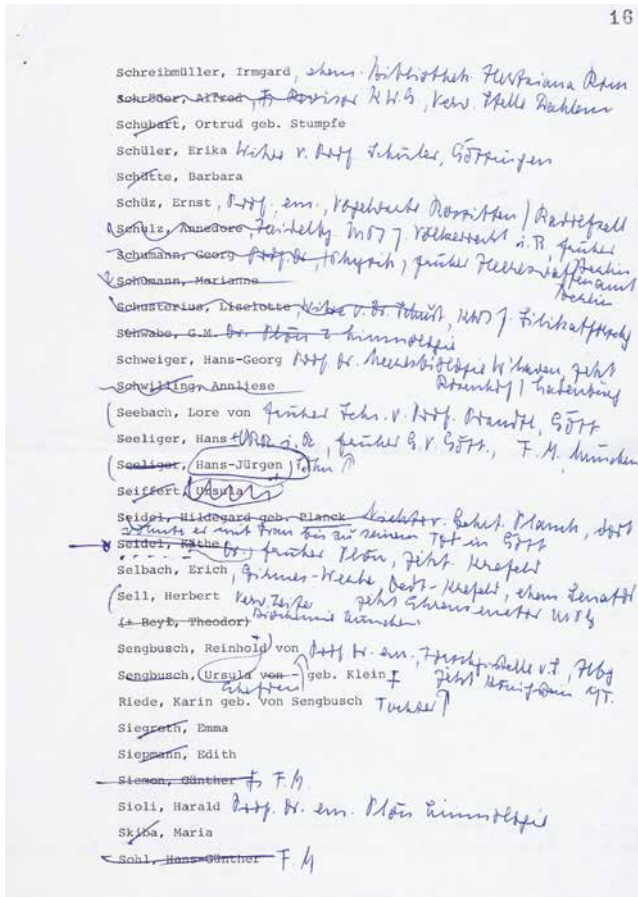 16
Schreibmüller, Irmgard, ehem. Bibliothek Hertziana Rom
Schröder, Alfred, Revisor KWG, Verw. Stelle Dahlem
Schubart, Ortrud geb. Stumpfe
Schüler, Erika Witwe v. Prof. Schüler, Göttingen
Schütte, Barbara
Schüz, Ernst, Prof. em., Vogelwarte Rossitten / Radolfzell
Schulz, Annedore, Heidelbg. Völkerrecht i. R. früher
Schumann, Georg Prof. Dr., früher Berlin
Schümann, Marianne Berlin
Schusterius, Liselotte, Witwe v. Dr. Schust, KWI f. Silikatforschg
Schwabe, G.M. Dr. Plön Limnologie
Schweiger, Hans-Georg Prof. Dr. Meeresbiologie W'haven, jetzt
Schwilling, Annliese Rosenhof / Ladenburg
Seebach, Lore von früher Sekr. v. Prof. Brandt, Gött
Seeliger, Hans i. R., früher G.V. Gött., F.M. München
Seeliger, Hans-Jürgen, Sohn
Seiffert, Ursula
Seidel, Hildegard geb. Planck Geht. Planck, dort
wohnte er mit Frau bis zu seinem Tot in Gött
Seidel, Käthe Dr., früher Plön, jetzt Krefeld
Selbach, Erich, Girmes-Werke, Oedt-Krefeld, ehem. Senator
Sell, Herbert Verw. Leiter jetzt Ehrensenator MPG
(+ Beyl, Theodor) Biochemie München
Sengbusch, Reinhold von Prof. Dr. em., Forschgsstelle v. S., Hbg
Sengbusch, Ursula von - geb. Klein jetzt Königstein /T.
Ehefrau
Riede, Karin geb. von Sengbusch Tochter
Siegroth, Emma
Siepmann, Edith
Siemon, Günther F.M.
Sioli, Harald Prof. Dr. em. Plön Limnologie
Skiba, Maria
Sohl, Hans-Günther F.M